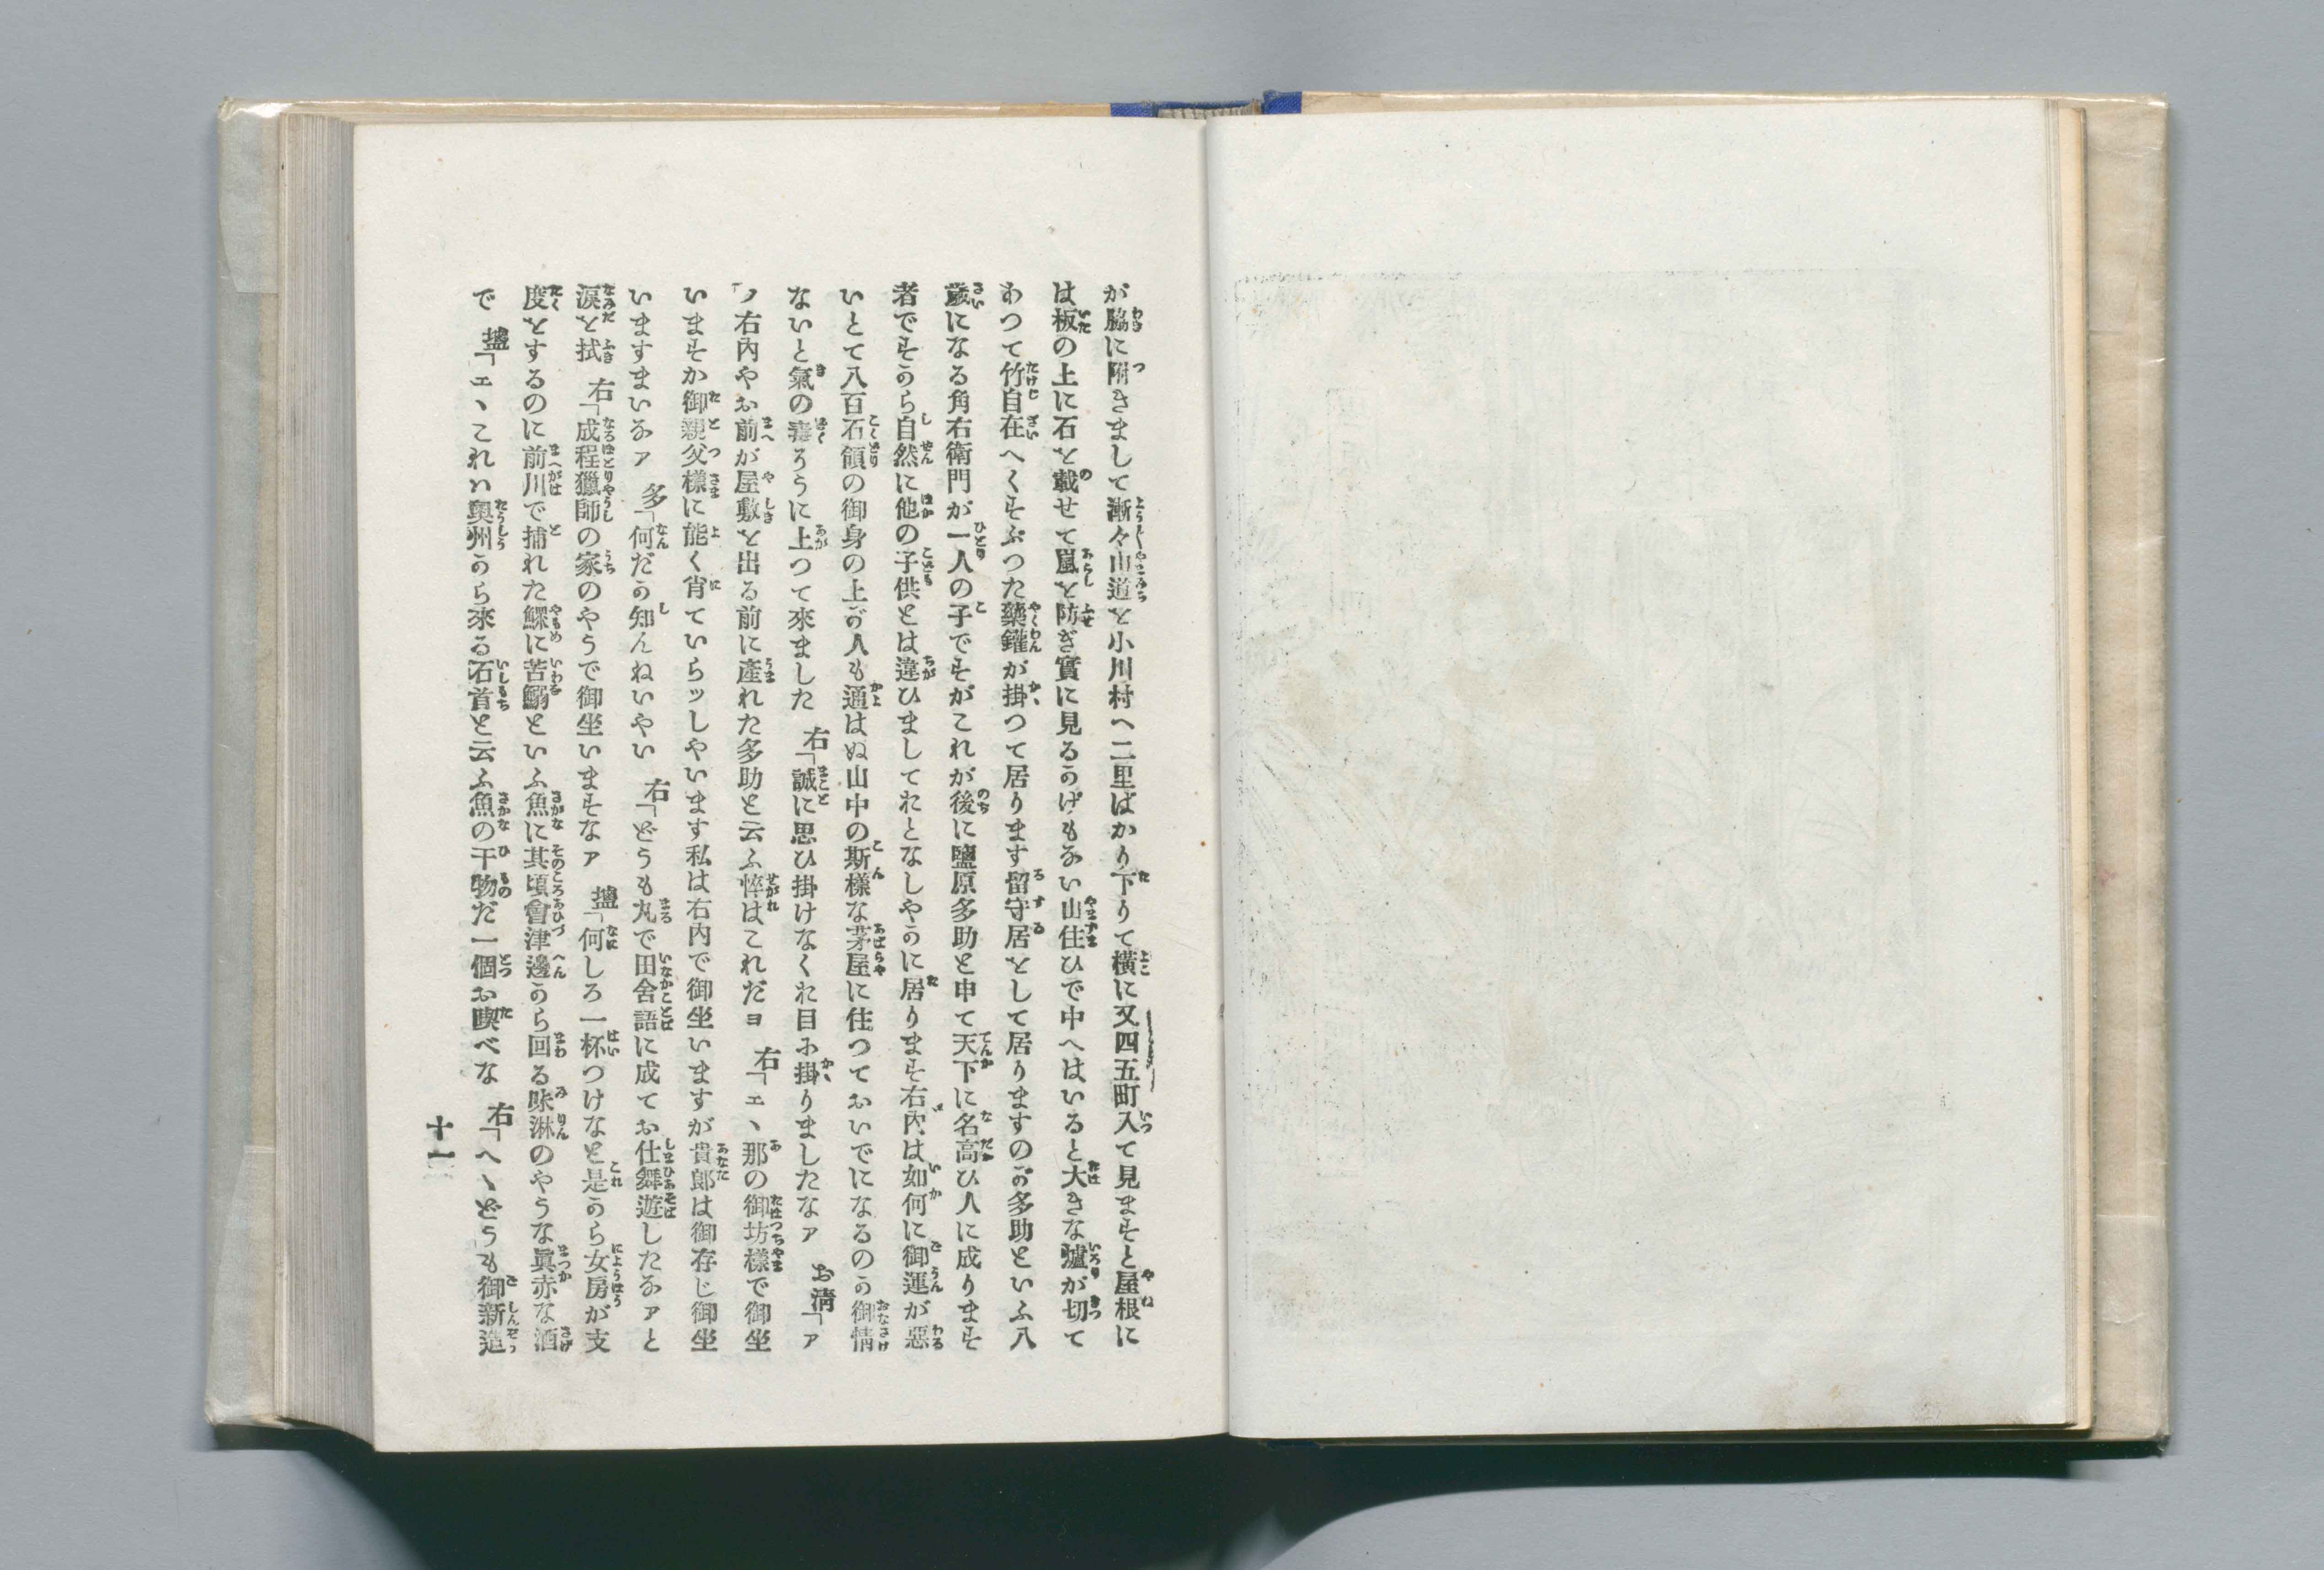 が脇に附きまして漸々山道を小川村へ二里ばかり下りて横に又四五町入て見ますと屋根に
は板の上に石を載せて嵐を防ぎ實に見るかげもない山住ひで中へはいると大きな爐が切て
あつて竹自在へくすぶつた藥鑵が掛つて居ります留守居をして居りますのが多助といふ八
歳になる角右衛門が一人の子ですがこれが後に鹽原多助と申て天下に名高ひ人に成ります
者ですから自然に他の子供とは違ひましておとなしやかに居ります右内は如何に御運が惡
いとて八百石領の御身の上が人も通はぬ山中の斯樣な茅屋に住つておいでになるのか御情
ないと氣の毒さうに上つて來ました 右「誠に思ひ掛けなくお目に掛りましたなァ お淸「ァ
ノ右内やお前が屋敷を出る前に産れた多助と云ふ悴はこれだヨ 右「ェヽ那の御坊樣で御坐
いますか御親父樣に能く肖ていらッしやいます私は右内で御坐いますが貴郎は御存じ御坐
いますまいなァ 多「何だか知んねいやい 右「どうも丸で田舍語に成てお仕舞遊したなァと
涙を拭き 右「成程獵師の家のやうで御坐いますなァ 鹽「何しろ一杯つけなと是から女房が支
度をするのに前川で捕れた鰥に苦鰯といふ魚に其頃會津邊から回る味淋のやうな眞赤な酒
で 鹽「エヽこれハ奥州から來る石首と云ふ魚の干物だ一個お喫べな 右「ヘヽどうも御新造
十一